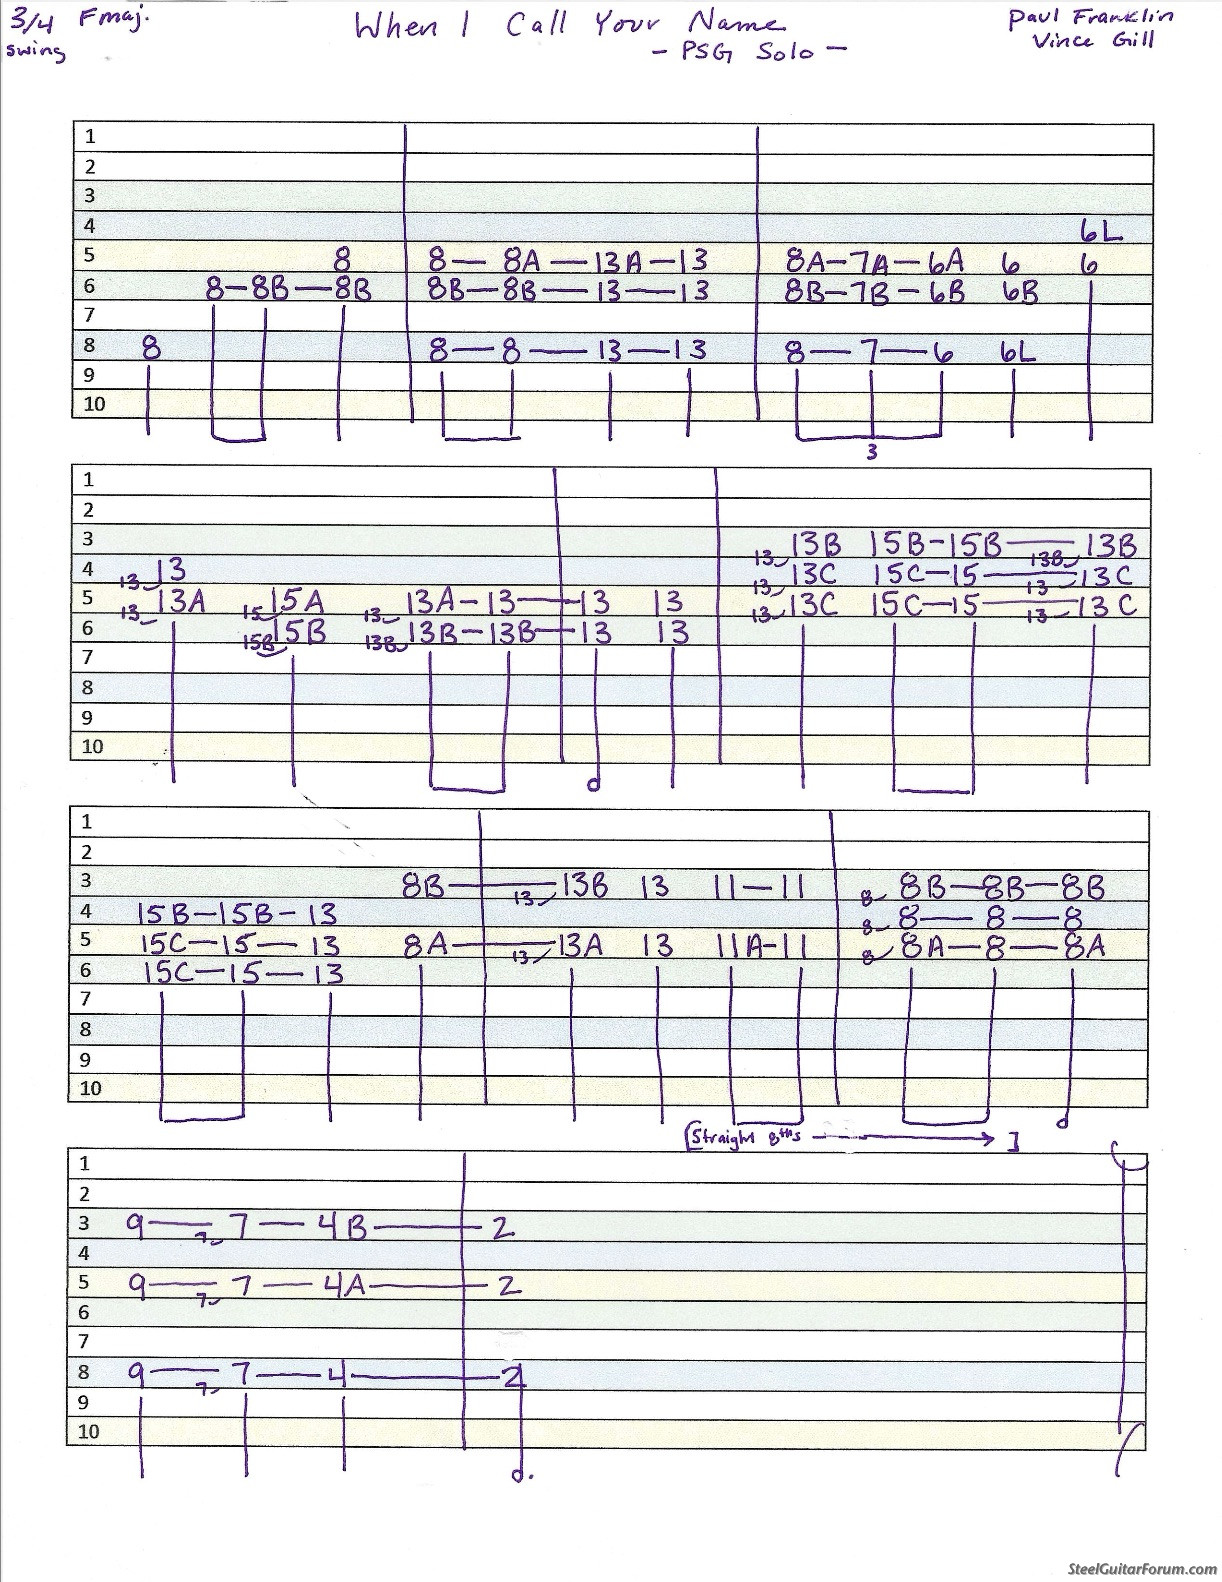 3/4 Fmaj. When I Call Your Name Paul Franklin
swing - PSG Solo - Vince Gill
1
2
3
4 6L
5 8 8— 8A —13A—13 8A—7A—6A 6 6
6 8-8B—8B 8B—8B—13—13 8B—7B—6B 6B
7
8 8 8—8—13—13 8—7—6 6L
9
10
3
1
2
3 13 13B 15B-15B—13B 13B
4 13 13 13 13C 15C—15—13 13C
5 13 13A 15 15A 13 13A-13—13 13 13 13C 15C—15—13 13C
6 15B 15B 13B 13B-13B—13 13
7
8
9
10
1
2
3 8B—13 13B 13 11—11 8 8B—8B—8B
4 15B-15B-13 8 8—8—8
5 15C—15—13 8A—13 13A 13 11A-11 8 8A—8—8A
6 15C—15—13
7
8
9
10
[Straight 8ths ]
1
2
3 9—7 7—4B—2
4
5 9—7 7—4A—2
6
7
8 9—7 7—4—2
9
10
SteelGuitarForum.com